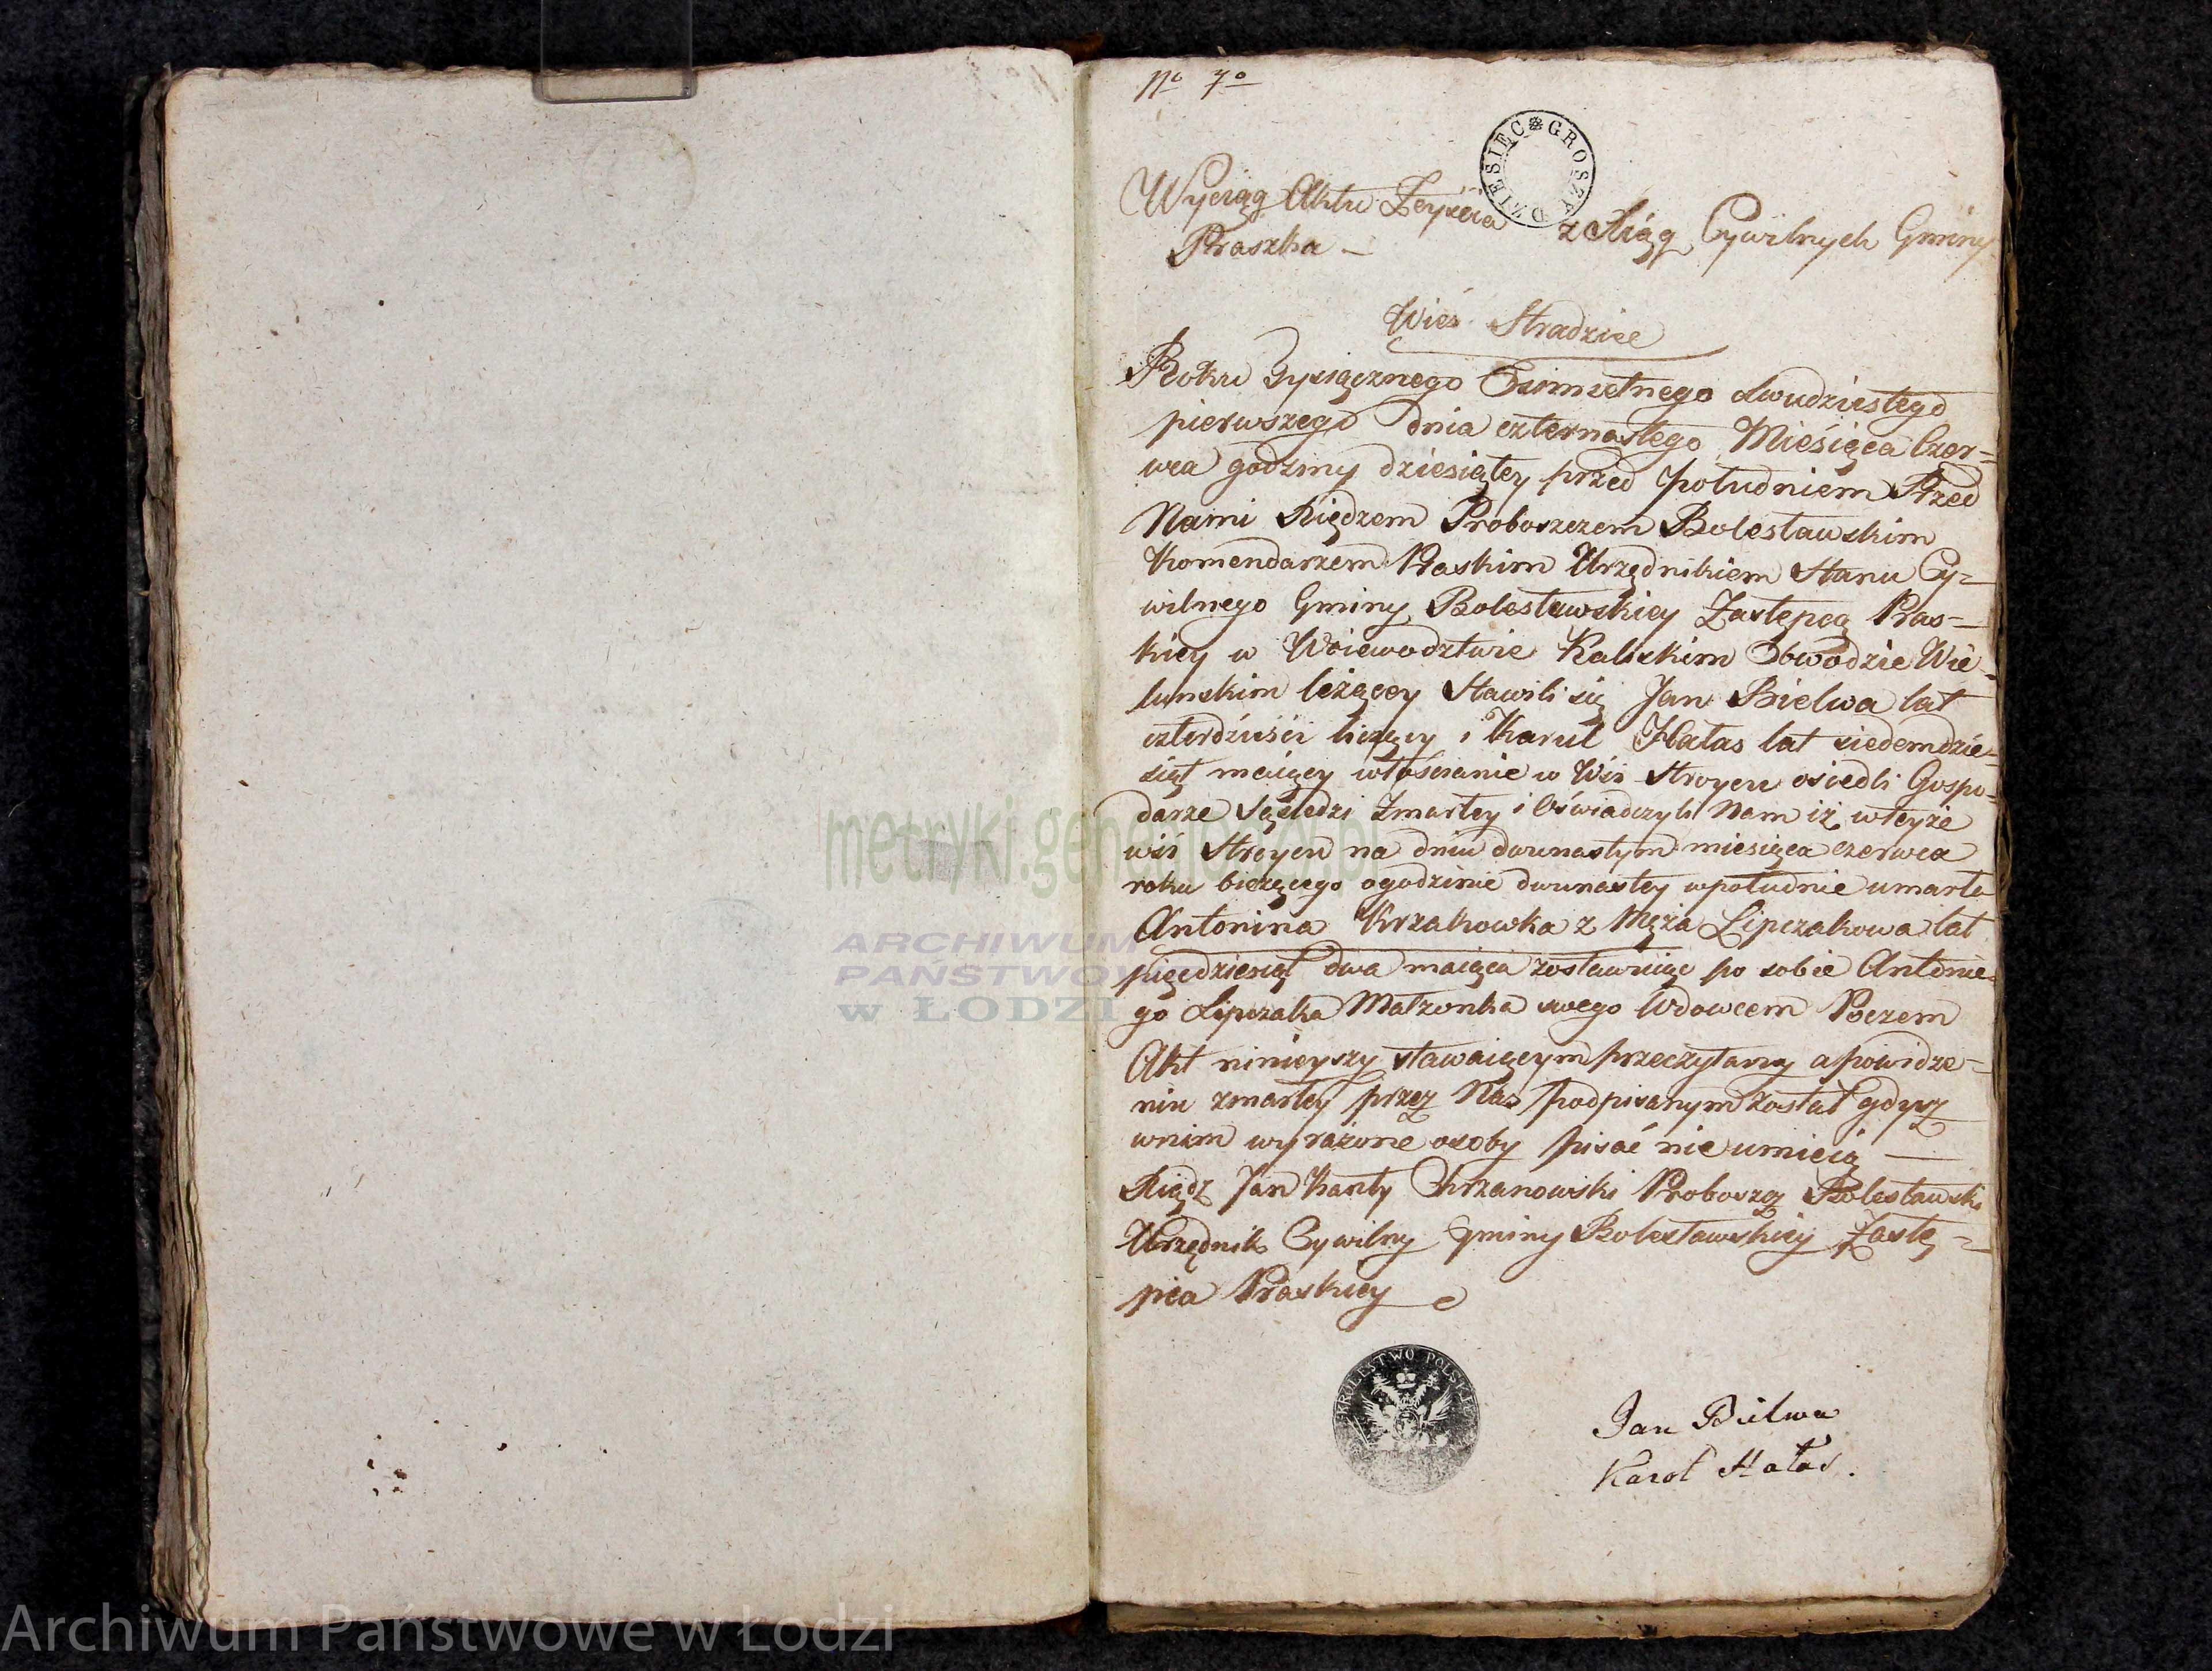 No 7o
DZIESIĘC GROSZY
Wyciąg Aktu Zeyścia z Xiąg Cywilnych Gminy
Praszka —
Wieś Stradzice
Roku Tysiącznego Ośmsetnego dwudziestego
pierwszego dnia czternastego Miesiąca Czer=
wca godziny dziesiątey przed południem Przed
Nami Xiędzem Proboszczem Bolesławskim
Komendarzem Praskim Urzędnikiem Stanu Cy=
wilnego Gminy Bolesławskiey Zastępcą Pras=
kiey w Woiewodztwie Kaliskim Obwodzie Wie=
lunskim leżącey Stawili się Jan Bielwa lat
czterdzieści liczący i Karul Hałas lat siedemdzie=
siąt maiący włościanie w Wsi Stroyen osiedli Gospo=
darze Sąsiedzi Zmarłey i Oświadczyli Nam iż w teyże
wsi Stroyen na dniu dwunastym miesiąca czerwca
roku bieżącego o godzinie dwunastey w południe umarła
Antonina Krzakowka z Męża Lipczakowa lat
pięcdziesiąt dwa maiąca zostawiaiąc po sobie Antonie=
go Lipczaka Małzonka swego Wdowcem Poczem
Akt ninieyszy stawaiącym przeczytany a po widze=
niu zmarłey przez Nas podpisanym został gdyż
w nim wyrażone osoby pisać nie umieią —
Xiądz Jan Kanty Chrzanowski Proboszcz Bolesławski
Urzędnik Cywilny Gminy Bolesławskiey Zastę=
pca Praskiey
KROLESTWO POLSKIE
Jan Bielwa
Karol Hałas.
metryki.genealodzy.pl
ARCHIWUM
PAŃSTWOWE
W ŁODZI
Archiwum Państwowe w Łodzi